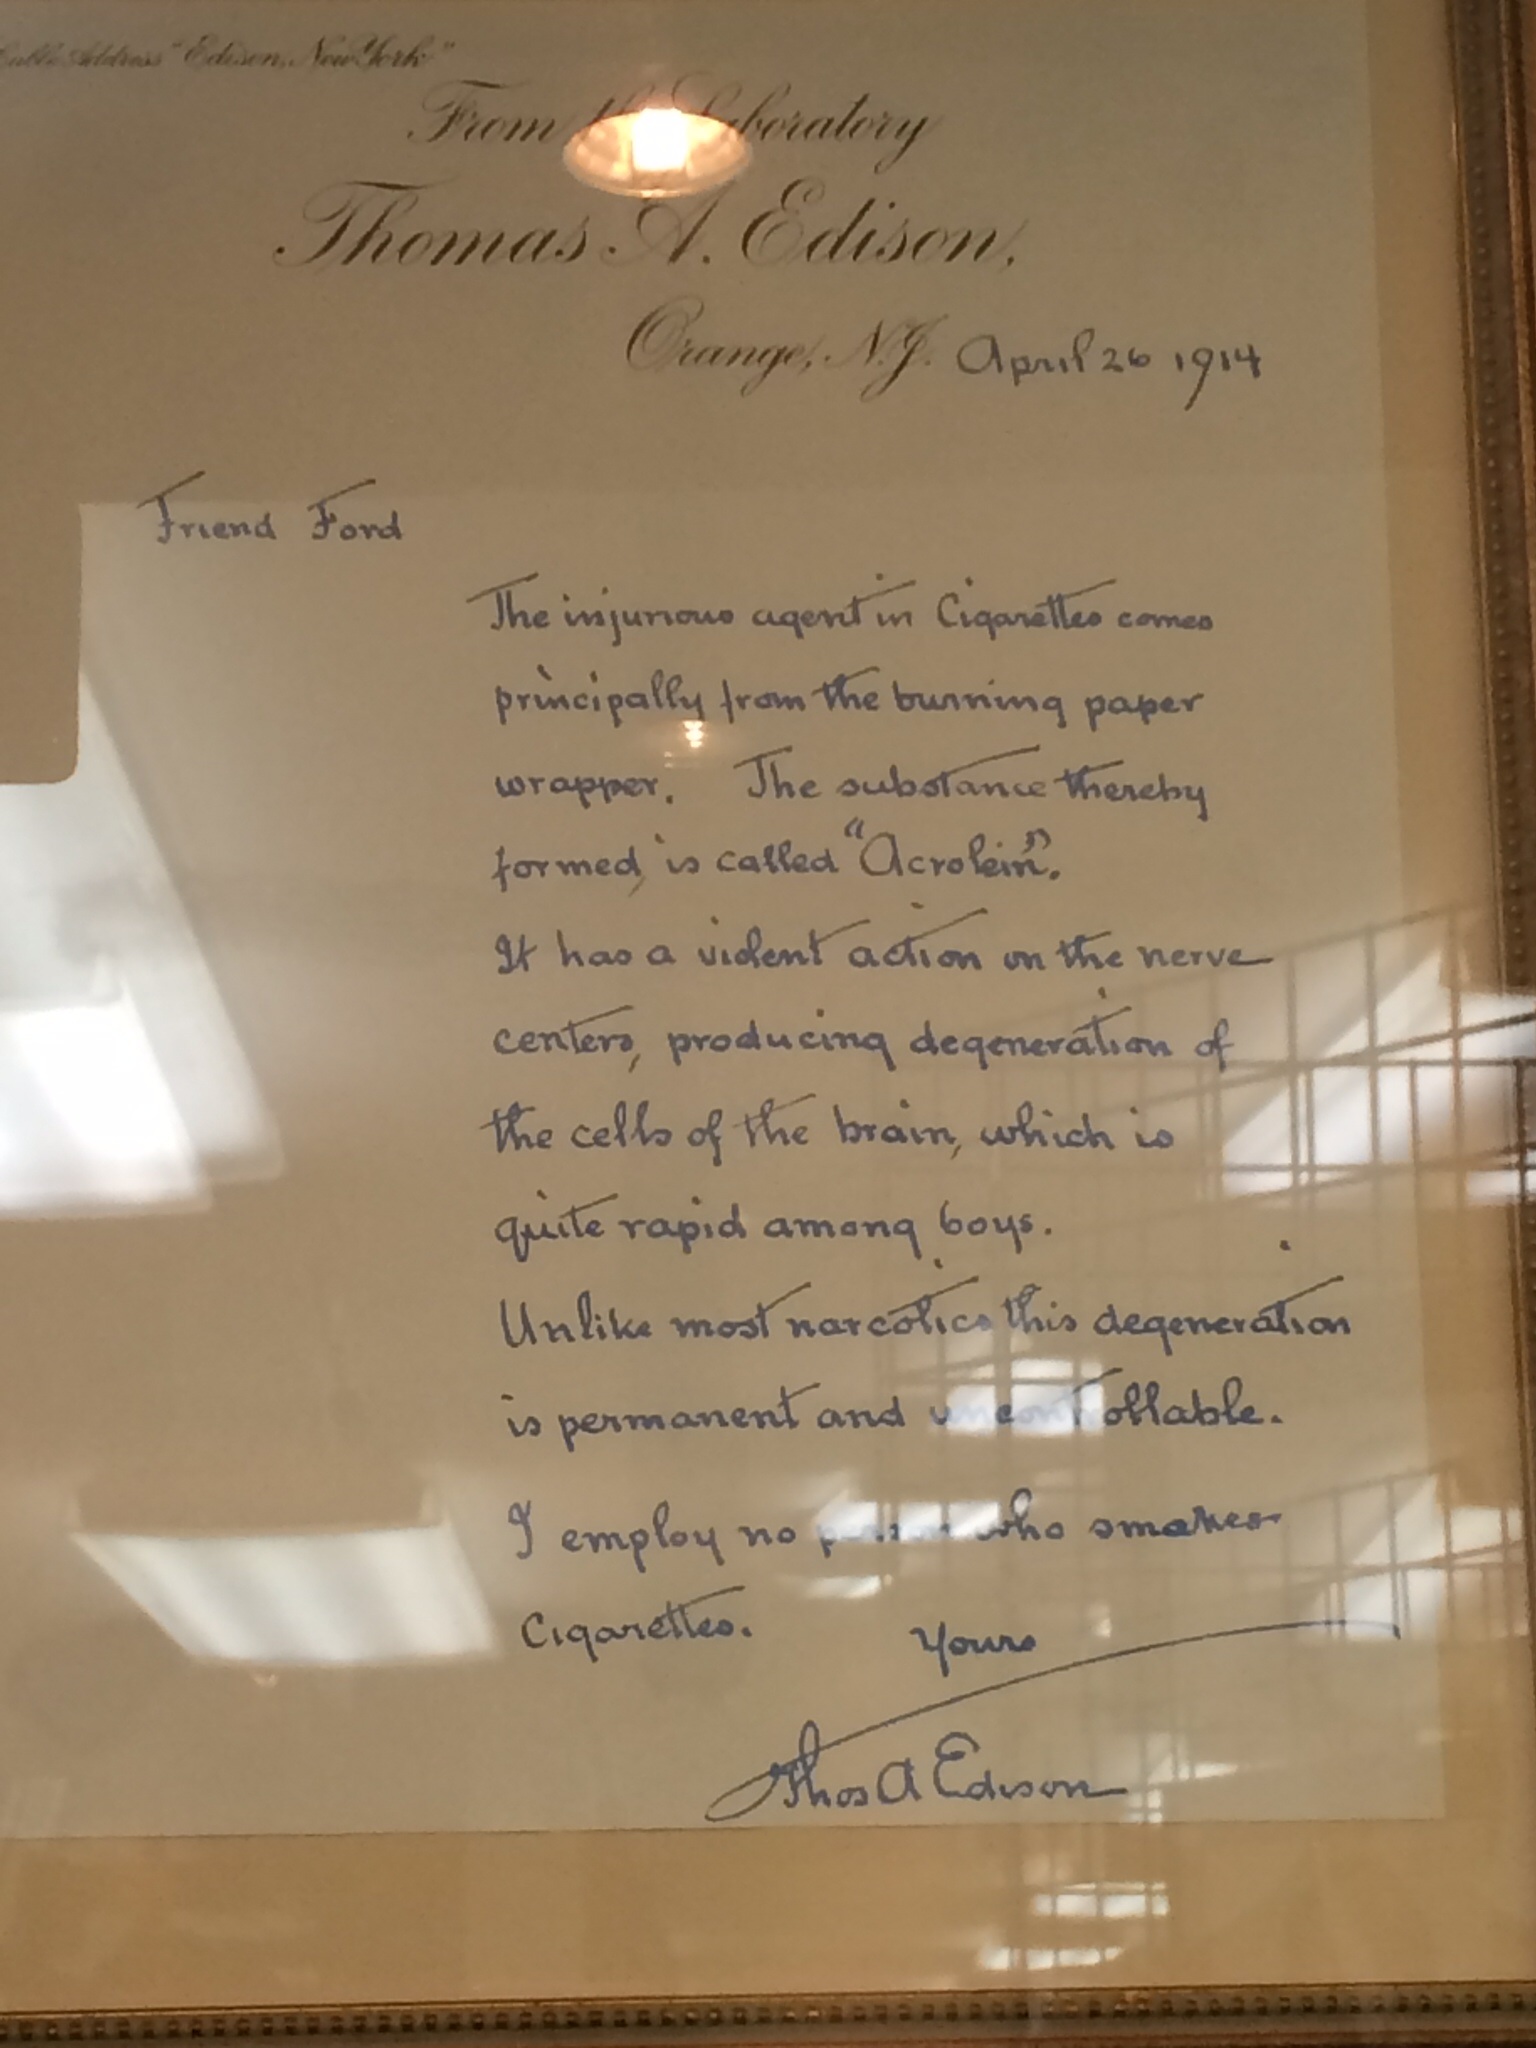 Cable Address "Edison, New York"
From the Laboratory
Thomas A. Edison,
Orange, N.J. April 26 1914
Friend Ford
The injurious agent in Cigarettes comes
principally from the burning paper
wrapper. The substance thereby
formed, is called "Acrolein".
It has a violent action on the nerve
centers, producing degeneration of
the cells of the brain, which is
quite rapid among boys.
Unlike most narcotics this degeneration
is permanent and uncontrollable.
I employ no person who smokes
Cigarettes. Yours
Thos A Edison